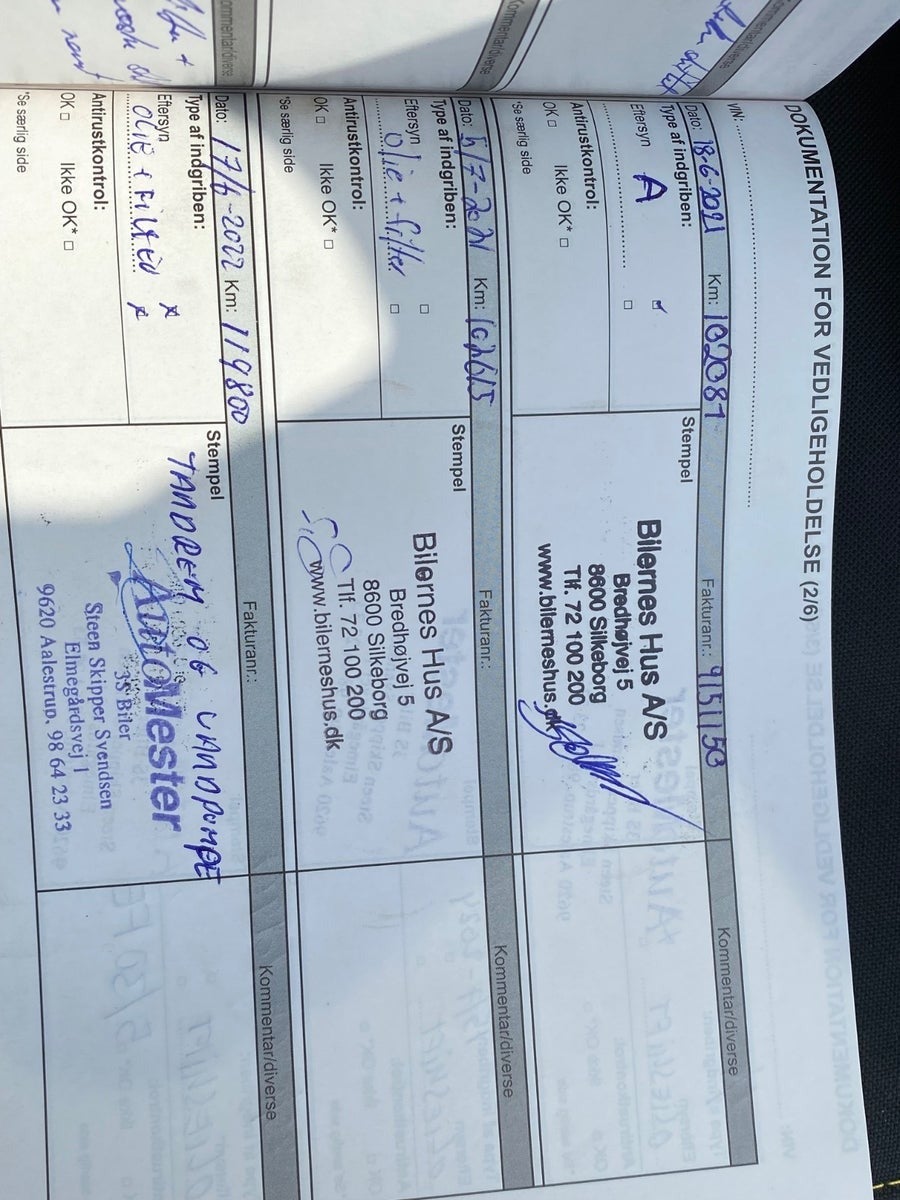 DOKUMENTATION FOR VEDLIGEHOLDELSE (2/6)
VIN:
Dato: 18-6-2021 Km: 102081 Fakturanr.: 9151153 Kommentar/diverse
Type af indgriben:
Eftersyn A
Antirustkontrol:
OK Ikke OK*
*Se særlig side
Stempel
Bilernes Hus A/S
Bredhøjvej 5
8600 Silkeborg
Tlf. 72 100 200
www.bilerneshus.dk
Dato: 5/7-2021 Km: 102615 Fakturanr.: Kommentar/diverse
Type af indgriben:
Eftersyn
Olie + filter
Antirustkontrol:
OK Ikke OK*
*Se særlig side
Stempel
Bilernes Hus A/S
Bredhøjvej 5
8600 Silkeborg
Tlf. 72 100 200
www.bilerneshus.dk
Dato: 17/6-2022 Km: 119800 Fakturanr.: Kommentar/diverse
Type af indgriben:
Eftersyn x
OLIE + FILTER x
Antirustkontrol:
OK Ikke OK*
*Se særlig side
Stempel
TANDREM OG VANDPOMPE
AutoMester
3S Biler
Steen Skipper Svendsen
Elmegårdsvej 1
9620 Aalestrup, 98 64 23 33
Kommentar/diverse
Kommentar/diverse
Kommentar/diverse